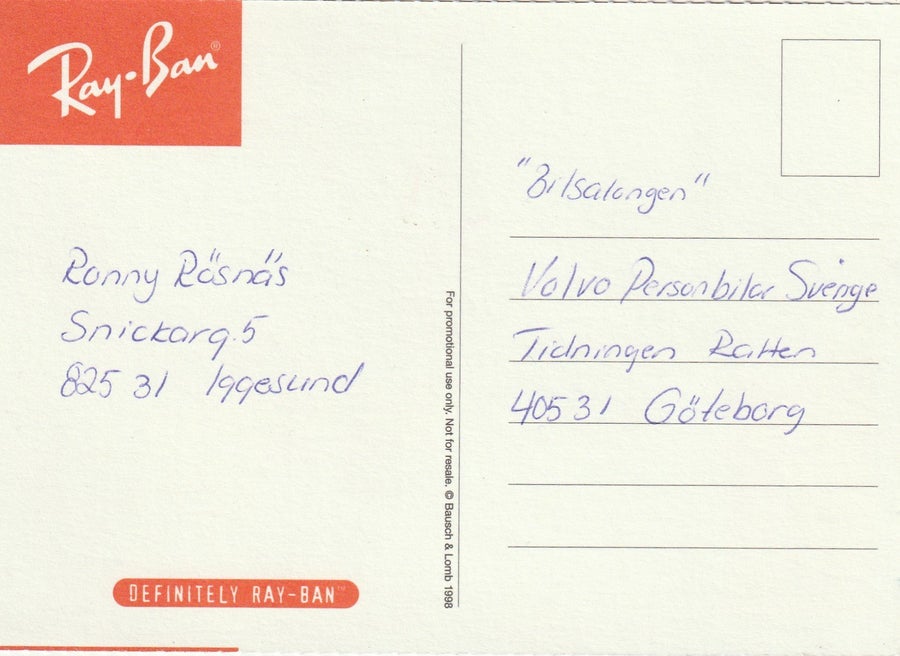 Ray-Ban®
Ronny Råsnäs
Snickarg.5
825 31 Iggesund
DEFINITELY RAY-BAN™
For promotional use only. Not for resale. © Bausch & Lomb 1998
"Bilsalongen"
Volvo Personbilar Sverige
Tidningen Ratten
405 31 Göteborg